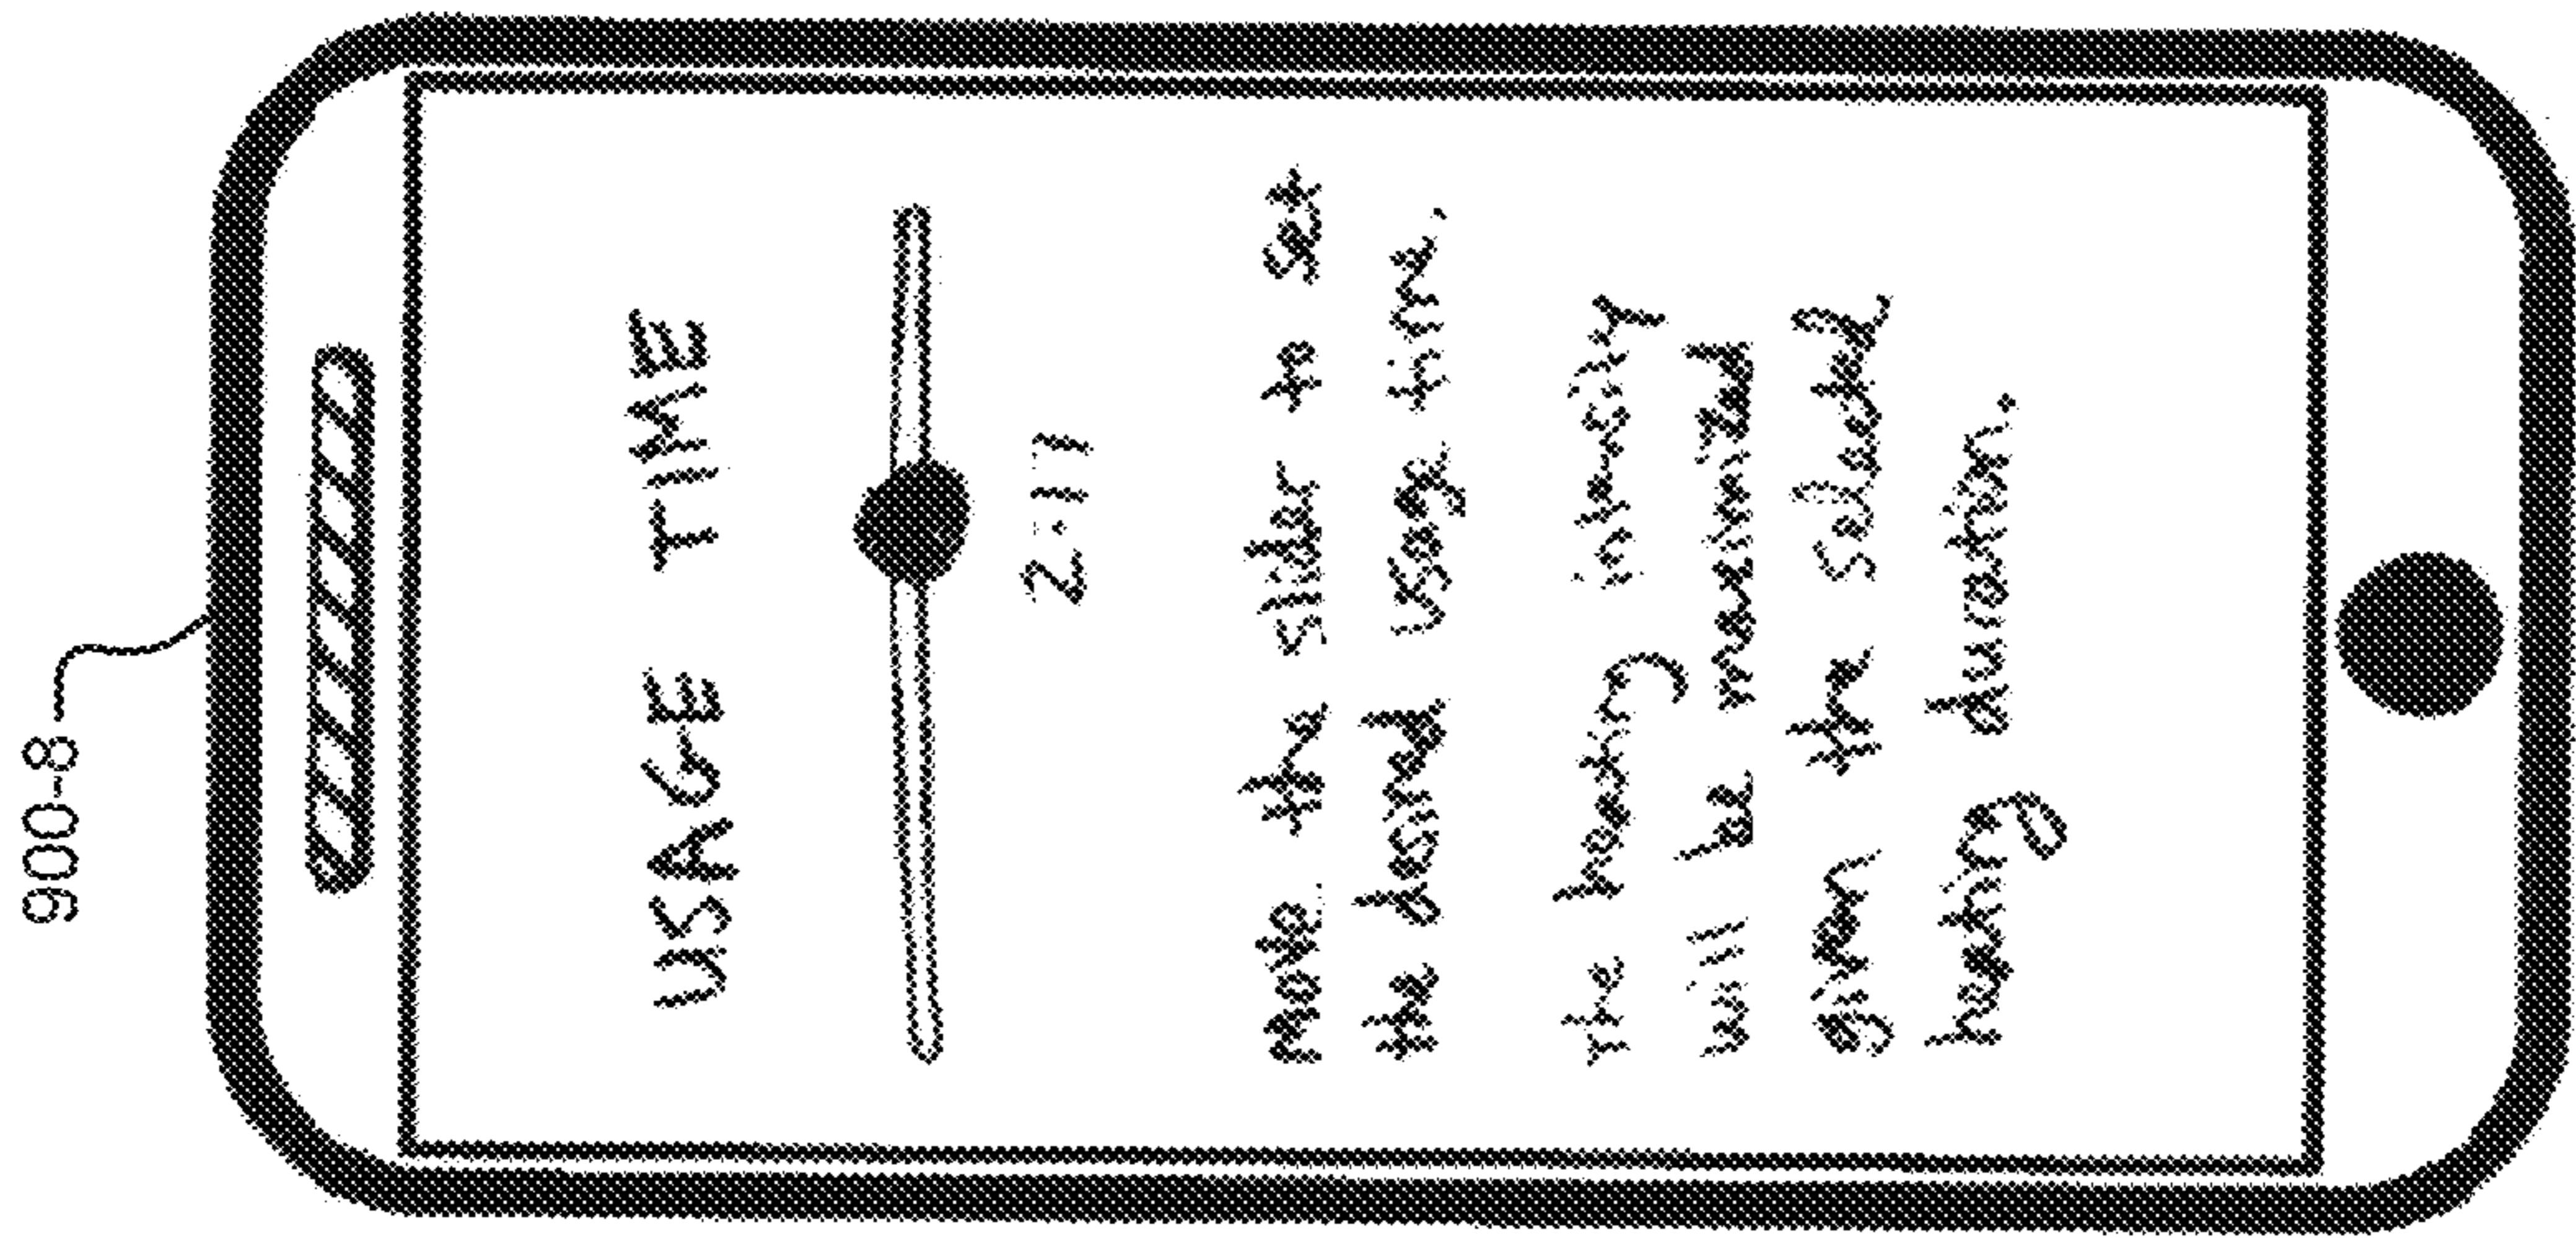 900-8
USAGE TIME
2:17
Move the slider to set
the desired usage time.
The heating intensity
will be maximized
given the selected
heating duration.